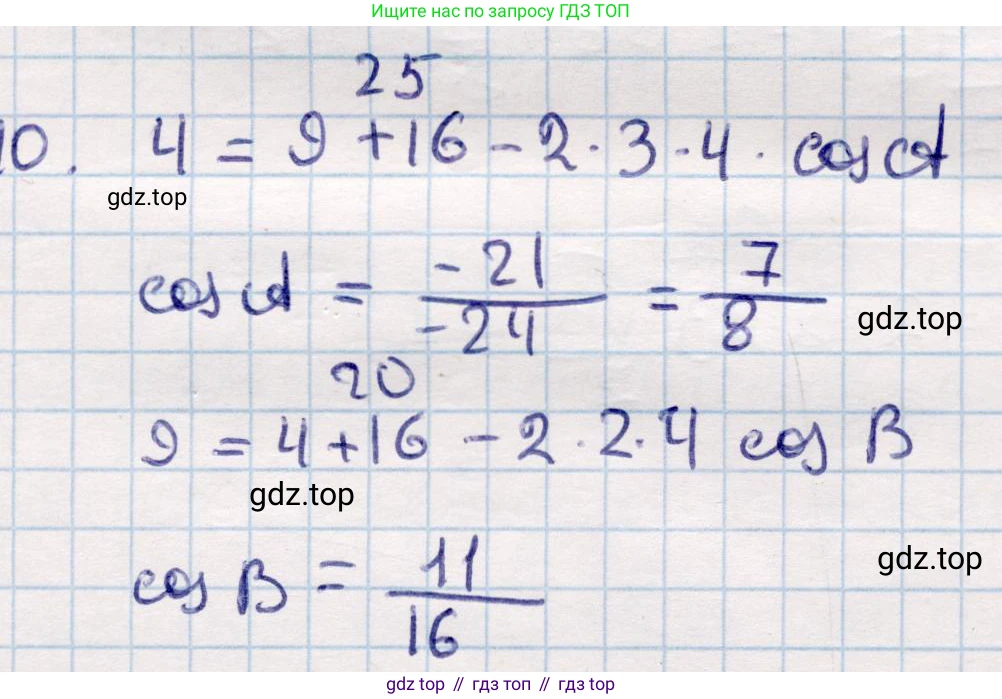 Ищите нас по запросу ГДЗ ТОП
25
10. 4 = 9 + 16 - 2 · 3 · 4 · cos A
gdz.top
cos A = -21/-24 = 7/8
gdz.top
20
9 = 4 + 16 - 2 · 2 · 4 cos B
gdz.top
gdz.top
cos B = 11/16
gdz топ // гдз топ // гдз top